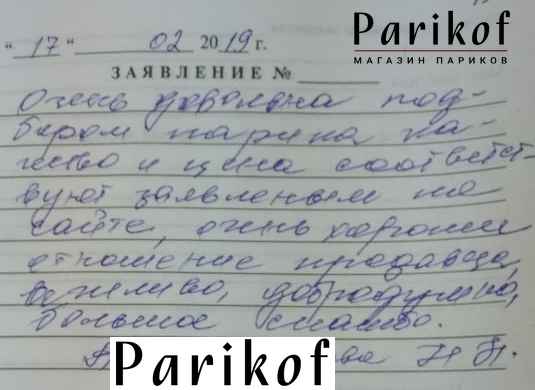 Parikof
МАГАЗИН ПАРИКОВ
"17" 02 2019 г.
ЗАЯВЛЕНИЕ №
Очень довольна под-
бором парика ка-
чество и цена соответст-
вуют заявленым на
сайте, очень хорошее
отношение продавца,
вежливо, добродушно,
большое спасибо.
Parikof ва Н Н.